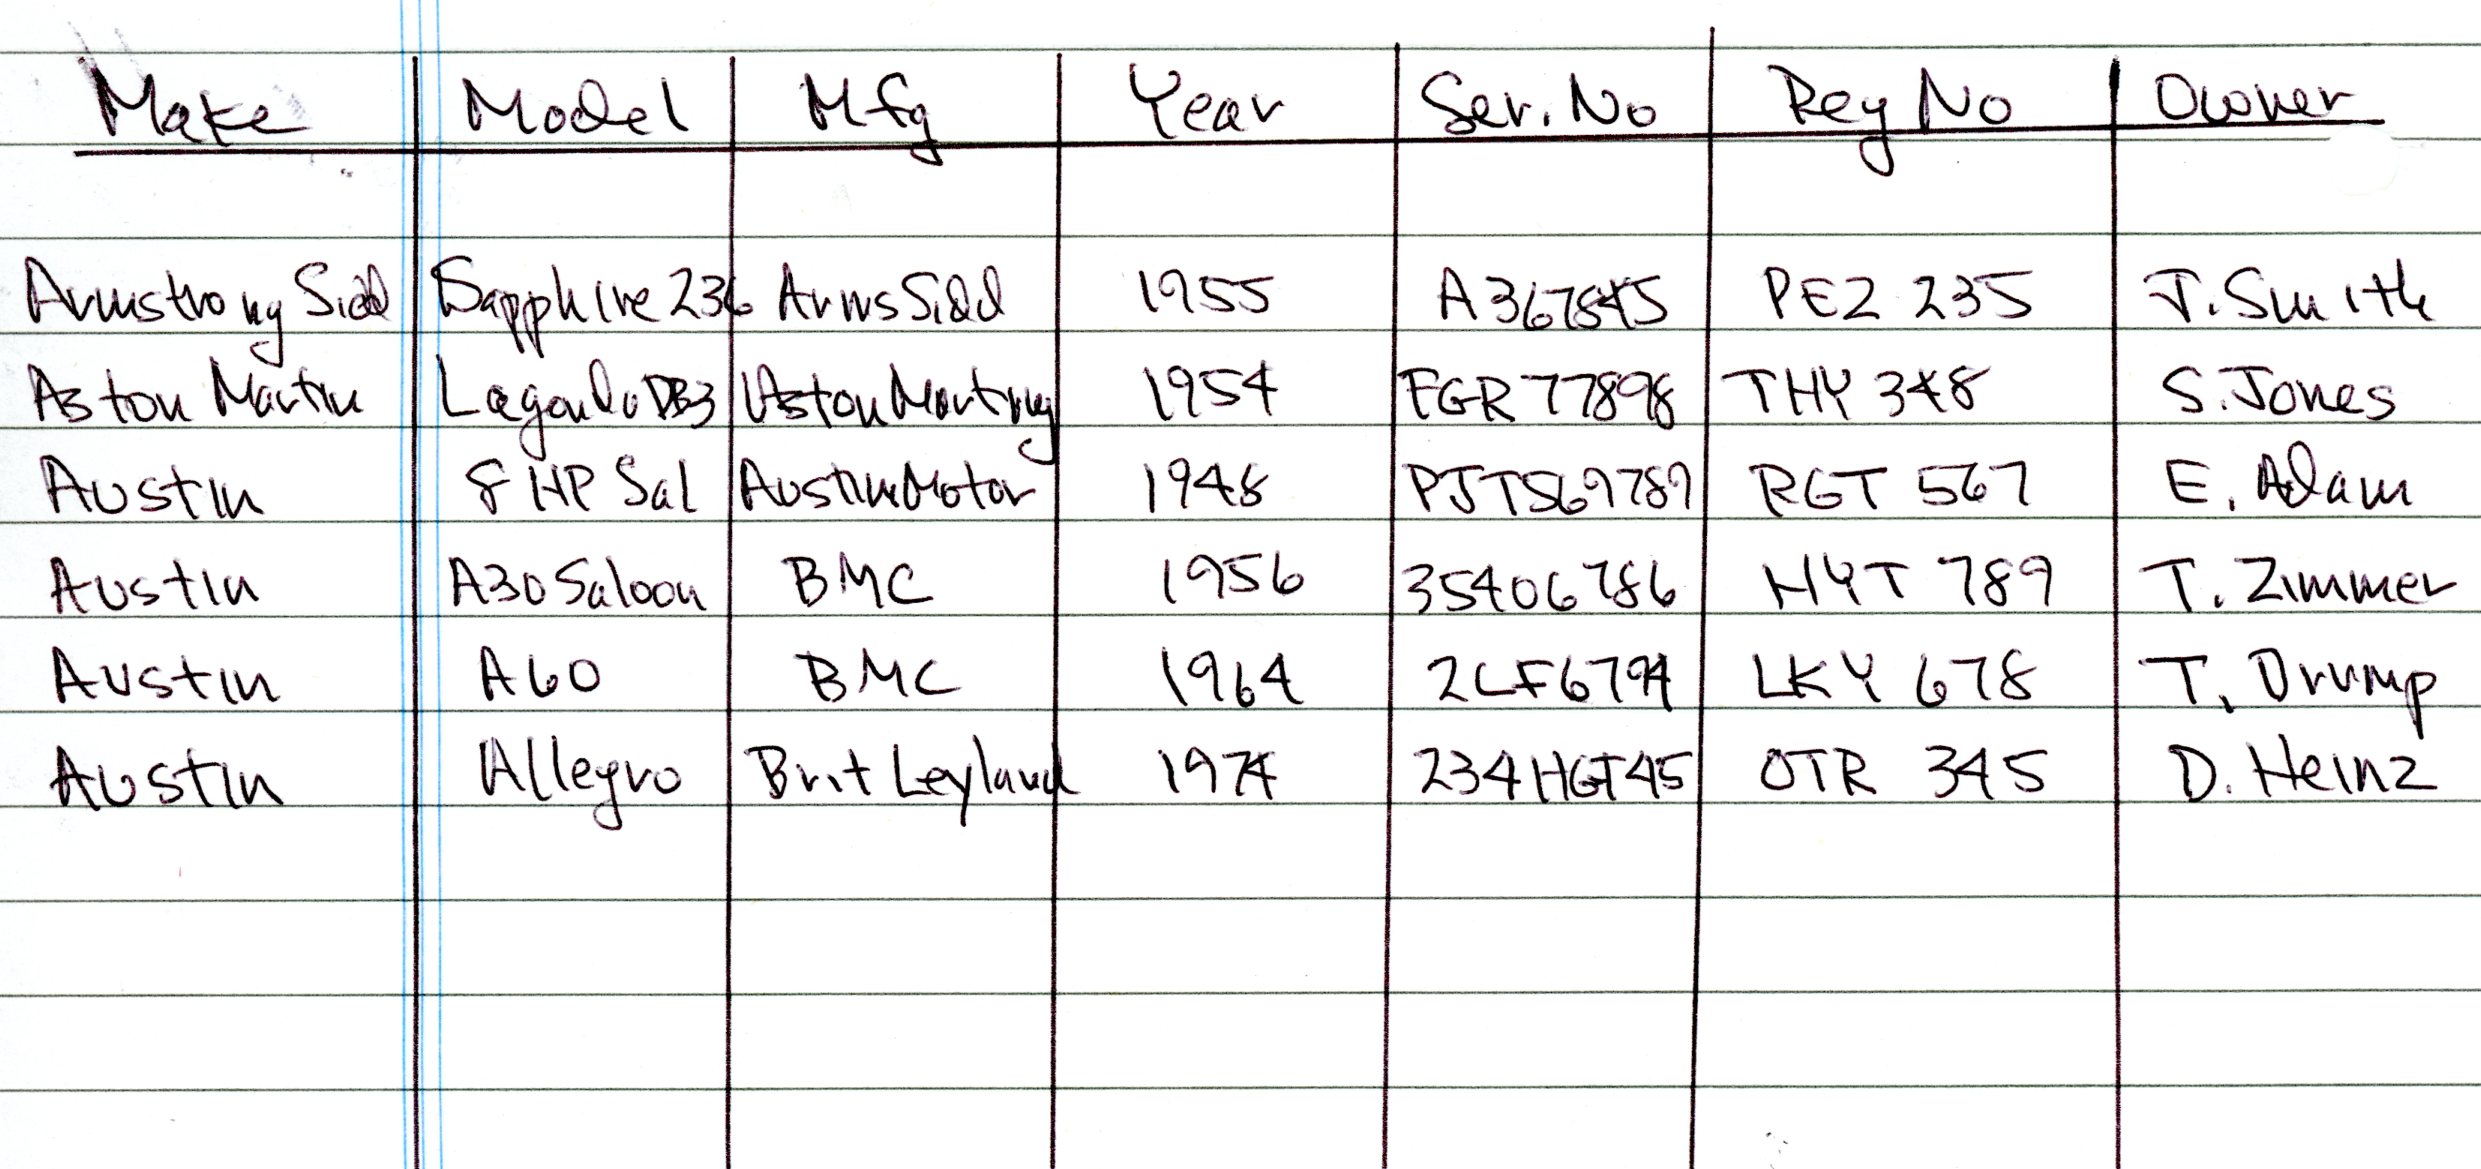 Make Model Mfg Year Ser. No Reg No Owner
Armstrong Sidd Sapphire 236 ArmsSidd 1955 A367845 PEZ 235 J. Smith
Aston Martin Lagonda DB3 Aston Martin 1954 FGR77898 THY 348 S. Jones
Austin 8 HP Sal Austin Motor 1948 PJTS69789 RGT 567 E. Adam
Austin A30 Saloon BMC 1956 35406786 HYT 789 T. Zimmer
Austin A60 BMC 1964 2LF6794 LKY 678 T. Drump
Austin Allegro Brit Leyland 1974 234HGT45 OTR 345 D. Heinz